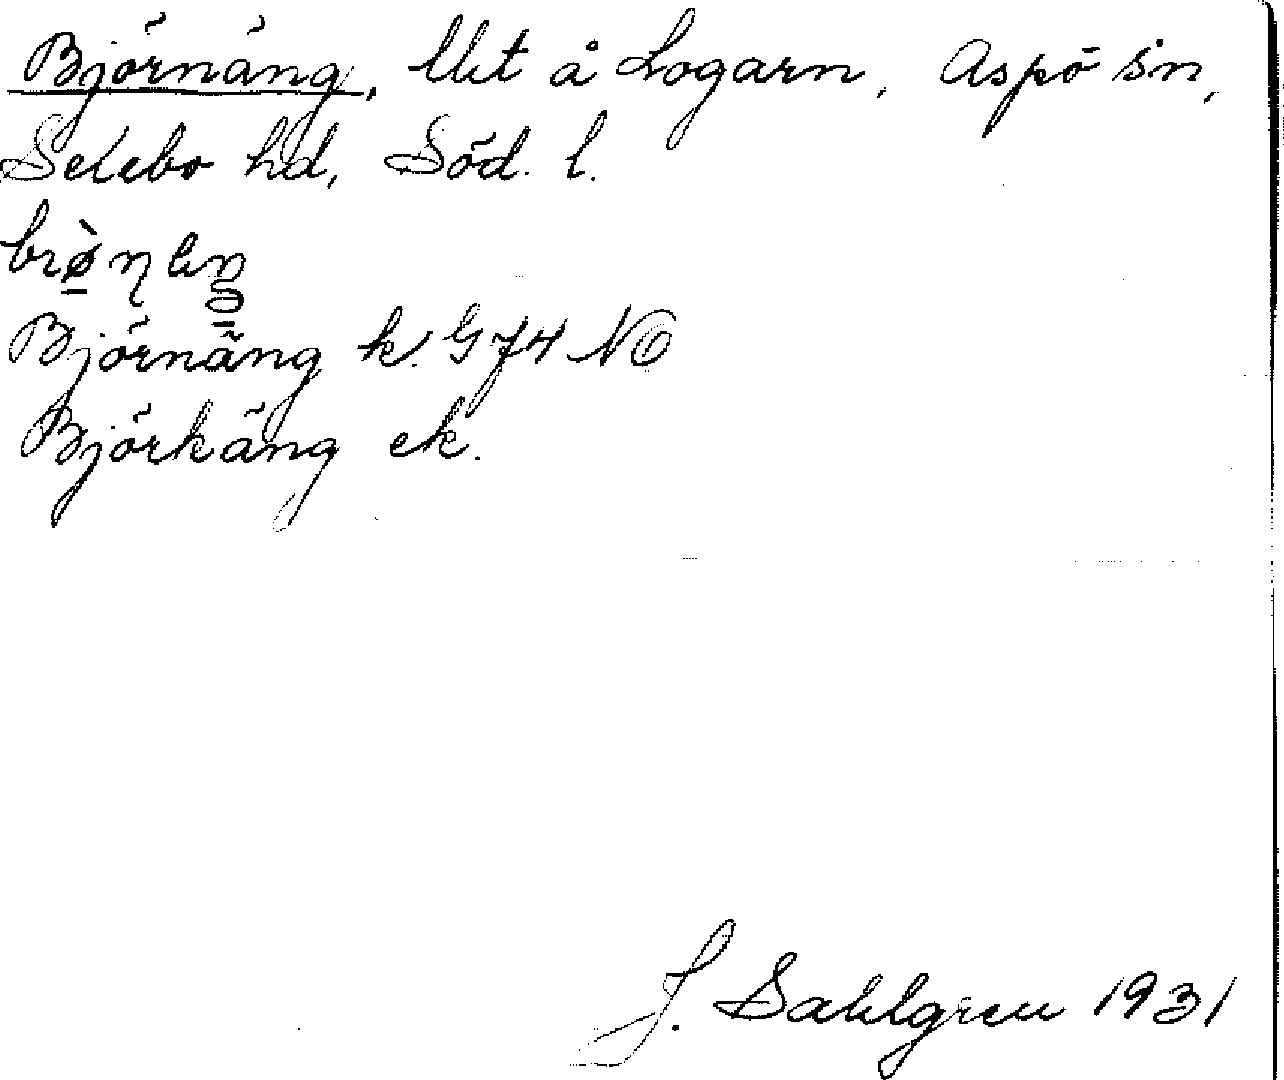 Björnäng, lht å Logarn, Aspö sn,
Selebo hd, Söd. l.
Björnäng k. G 74 NO
Björkäng ek.
J. Sahlgren 1931